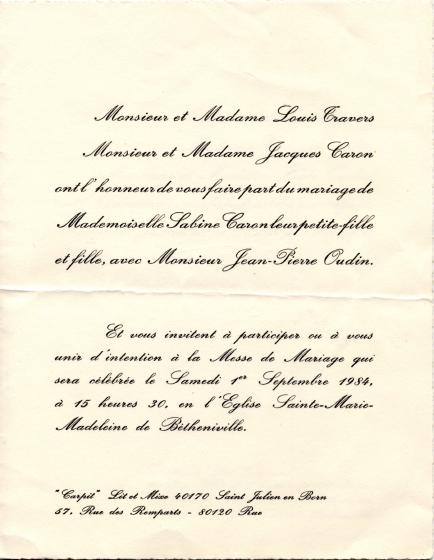 Monsieur et Madame Louis Travers
Monsieur et Madame Jacques Caron
ont l'honneur de vous faire part du mariage de
Mademoiselle Sabine Caron leur petite-fille
et fille, avec Monsieur Jean-Pierre Oudin.
Et vous invitent à participer ou à vous
unir d'intention à la Messe de Mariage qui
sera célébrée le Samedi 1er Septembre 1984,
à 15 heures 30, en l'Eglise Sainte-Marie-
Madeleine de Bétheniville.
"Carpit" Lit et Mixe 40170 Saint Julien en Born
57, Rue des Remparts - 80120 Rue